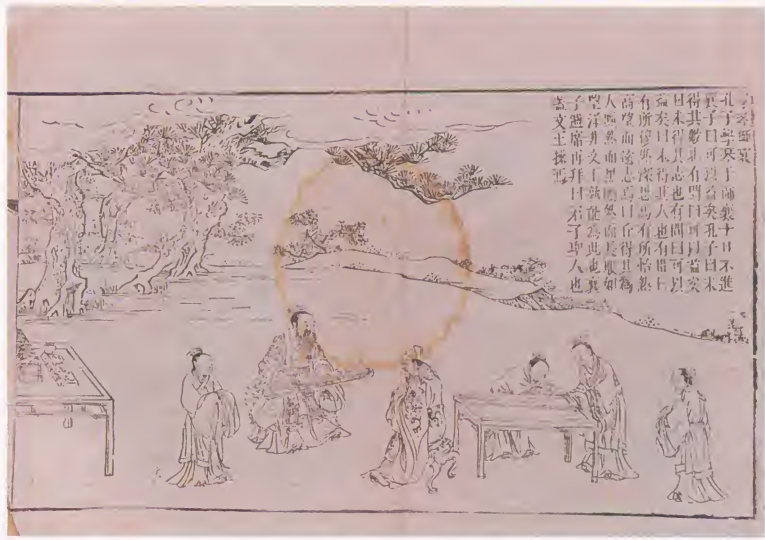 學琴師襄
孔子學琴于師襄十日不進
襄子曰可以益矣孔子曰未
得其數也有間曰可以益矣
曰未得其志也有間曰可以
益矣曰未得其人也有間曰
有所穆然深思焉有所怡然
高望而遠志焉曰丘得其為
人黯然而黑頎然而長眼如
望洋非文王孰能為此也襄
子避席再拜曰君子聖人也
蓋文王操焉